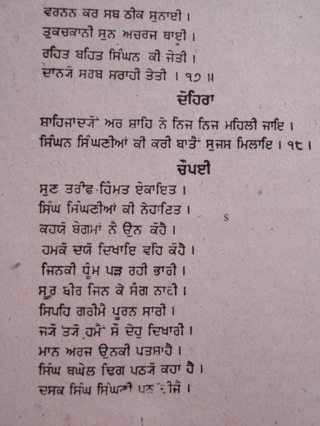 ਵਰਨਨ ਕਰ ਸਬ ਠੀਕ ਸੁਨਾਈ।
ਤੁਕਚਕਾਨੀ ਸੁਨ ਅਚਰਜ ਥਾਈ।
ਰਹਿਤ ਬਹਿਤ ਸਿੰਘਨ ਕੀ ਜੇਤੀ।
ਦਾਨਯੋ ਸਰਬ ਸਰਾਹੀ ਤੇਤੀ । ੧੭॥
ਦੋਹਿਰਾ
ਸ਼ਾਹਿਜਾਦਯੋਂ ਅਰ ਸ਼ਾਹਿ ਨੇ ਨਿਜ ਨਿਜ ਮਹਿਲੀ ਜਾਇ ।
ਸਿੰਘਨ ਸਿੰਘਣੀਆਂ ਕੀ ਕਰੀ ਬਾਤੈਂ ਸੁਜਸ ਮਿਲਾਇ ।੧੮।
ਚੌਪਈ
ਸੁਣ ਤਰੀਫ ਹਿੰਮਤ ਏਕਾਇਤ ।
ਸਿੰਘ ਸਿੰਘਣੀਆਂ ਕੀ ਨੇਹਾਇਤ ।
ਕਹਯੋ ਬੇਗਮਾਂ ਨੈ ਉਨ ਕੋਹੈ ।
ਹਮਕੋ ਦਯੋ ਦਿਖਾਇ ਵਹਿ ਕੋਹੈ ।
ਜਿਨਕੀ ਧੂੰਮ ਪੜ ਰਹੀ ਭਾਰੀ ।
ਸੂਰ ਬੀਰ ਜਿਨ ਕੇ ਸੰਗ ਨਾਹੀ ।
ਸਿਪਹਿ ਗਰੀਮੈ ਪੂਰਨ ਸਾਰੀ ।
ਜਯੋਂ ਤਯੋਂ ਹਮੈਂ ਸੌ ਦੇਹੁ ਦਿਖਾਰੀ ।
ਮਾਨ ਅਰਜ ਉਨਕੀ ਪਤਸ਼ਾਹੈ ।
ਸਿੰਘ ਬਘੇਲ ਢਿਗ ਪਠਯੋ ਕਹਾ ਹੈ ।
ਦਸਕ ਸਿੰਘ ਸਿੰਘਣੀ